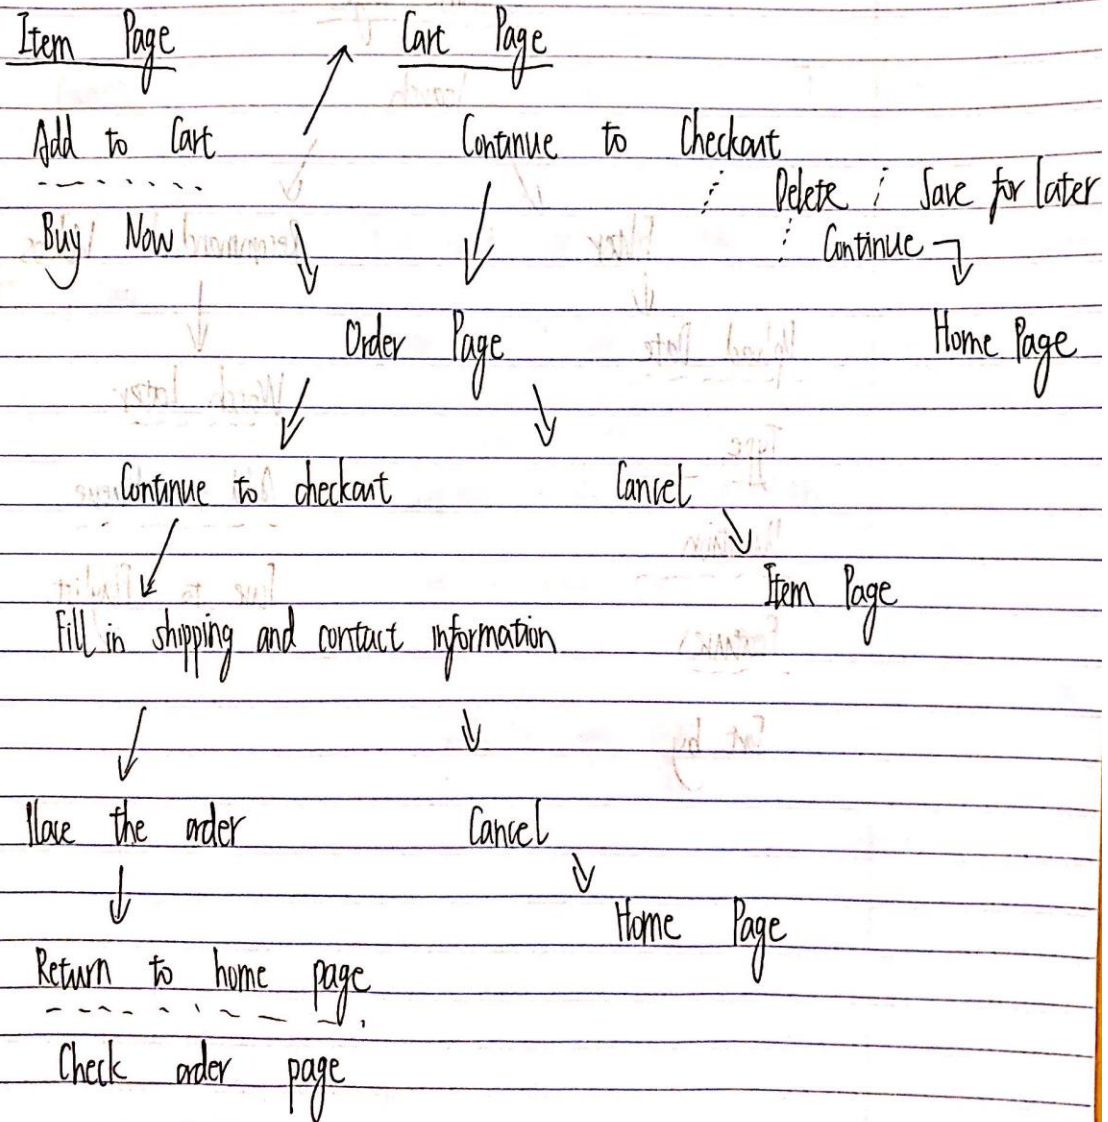 Item Page Cart Page
Add to Cart Continue to Checkout
Delete Save for later
Buy Now Continue
Order Page Home Page
Continue to checkout Cancel
Item Page
Fill in shipping and contact information
Place the order Cancel
Home Page
Return to home page
Check order page